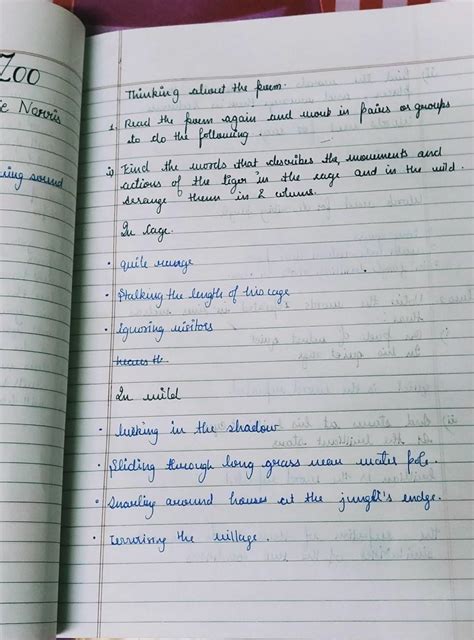 Zoo
ie Norris
ing sound
Thinking about the poem.
1. Read the poem again and work in pairs or groups
to do the following.
i) Find the words that describes the, movements and
actions of the tiger in the cage and in the wild.
Arange them in 2 colums.
In cage.
• quite range
• Stalking the length of his cage
• Ignoring visitors
In wild
• lurking in the shadow
• Sliding through long grass near water hole.
• Snarling around houses at the jungle's endge.
• Terrorising the village.